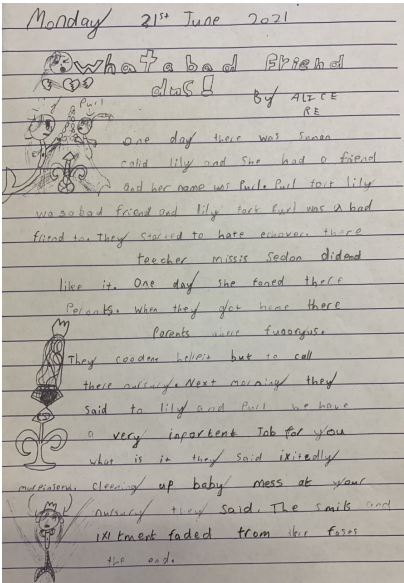 Monday 21st June 2021
What a bad Friend
dus!
By ALICE
RE
Purl
One day there was Suman
calld lily and She had a friend
and her name was Purl. Purl tort lily
was a bad friend and lily tort Purl was a bad
friend to. They started to hate echover. there
teecher missis Sedon didend
like it. One day she foned there
Perants. When they got home there
Parents were fuoongus.
They coodent beleix but to call
there nursury. Next morning they
said to lily and Purl we have
a very inportent Job for you
what is it they said ixitedly
cleening up baby mess at your
nursury they said. The smils and
ixitment faded from there foses
the end.